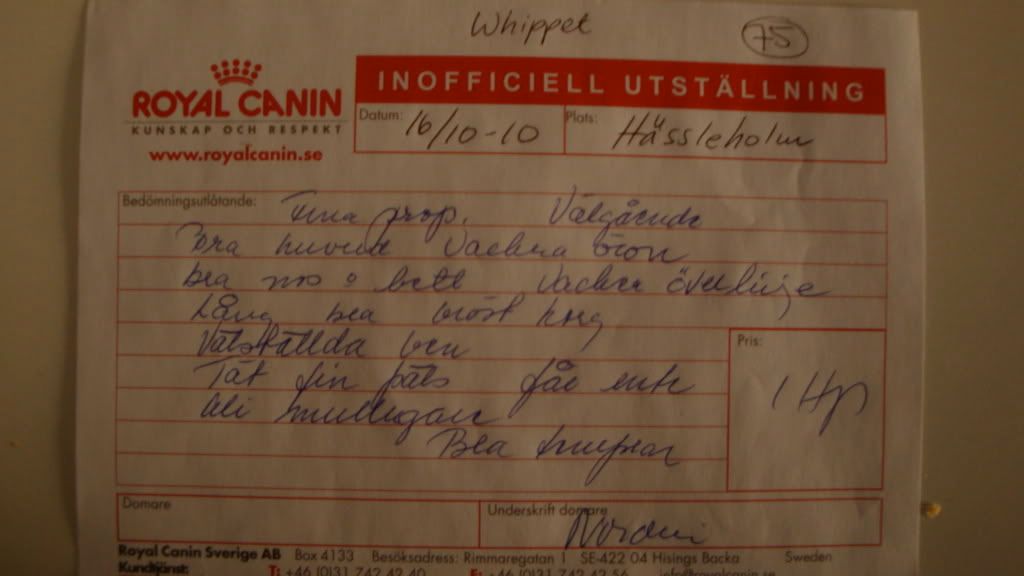 Whippet 75
ROYAL CANIN
KUNSKAP OCH RESPEKT
www.royalcanin.se
INOFFICIELL UTSTÄLLNING
Datum: 16/10-10 Plats: Hässleholm
Bedömningsutlåtande: Fina prop. Välgående
Bra huvud Vackra öron
bra nos o bett Vacker överlinje
Lång bra bröst korg
Välställda ben
Tät fin päls får inte
bli mulligare
Bra
Pris: 1 Hp
Domare
Underskrift domare
Royal Canin Sverige AB Box 4133 Besöksadress: Rimmaregatan 1 SE-422 04 Hisings Backa Sweden
Kundtjänst: T: +46 (0)31 742 42 40 F: +46 (0)31 742 42 56 info@royalcanin.se